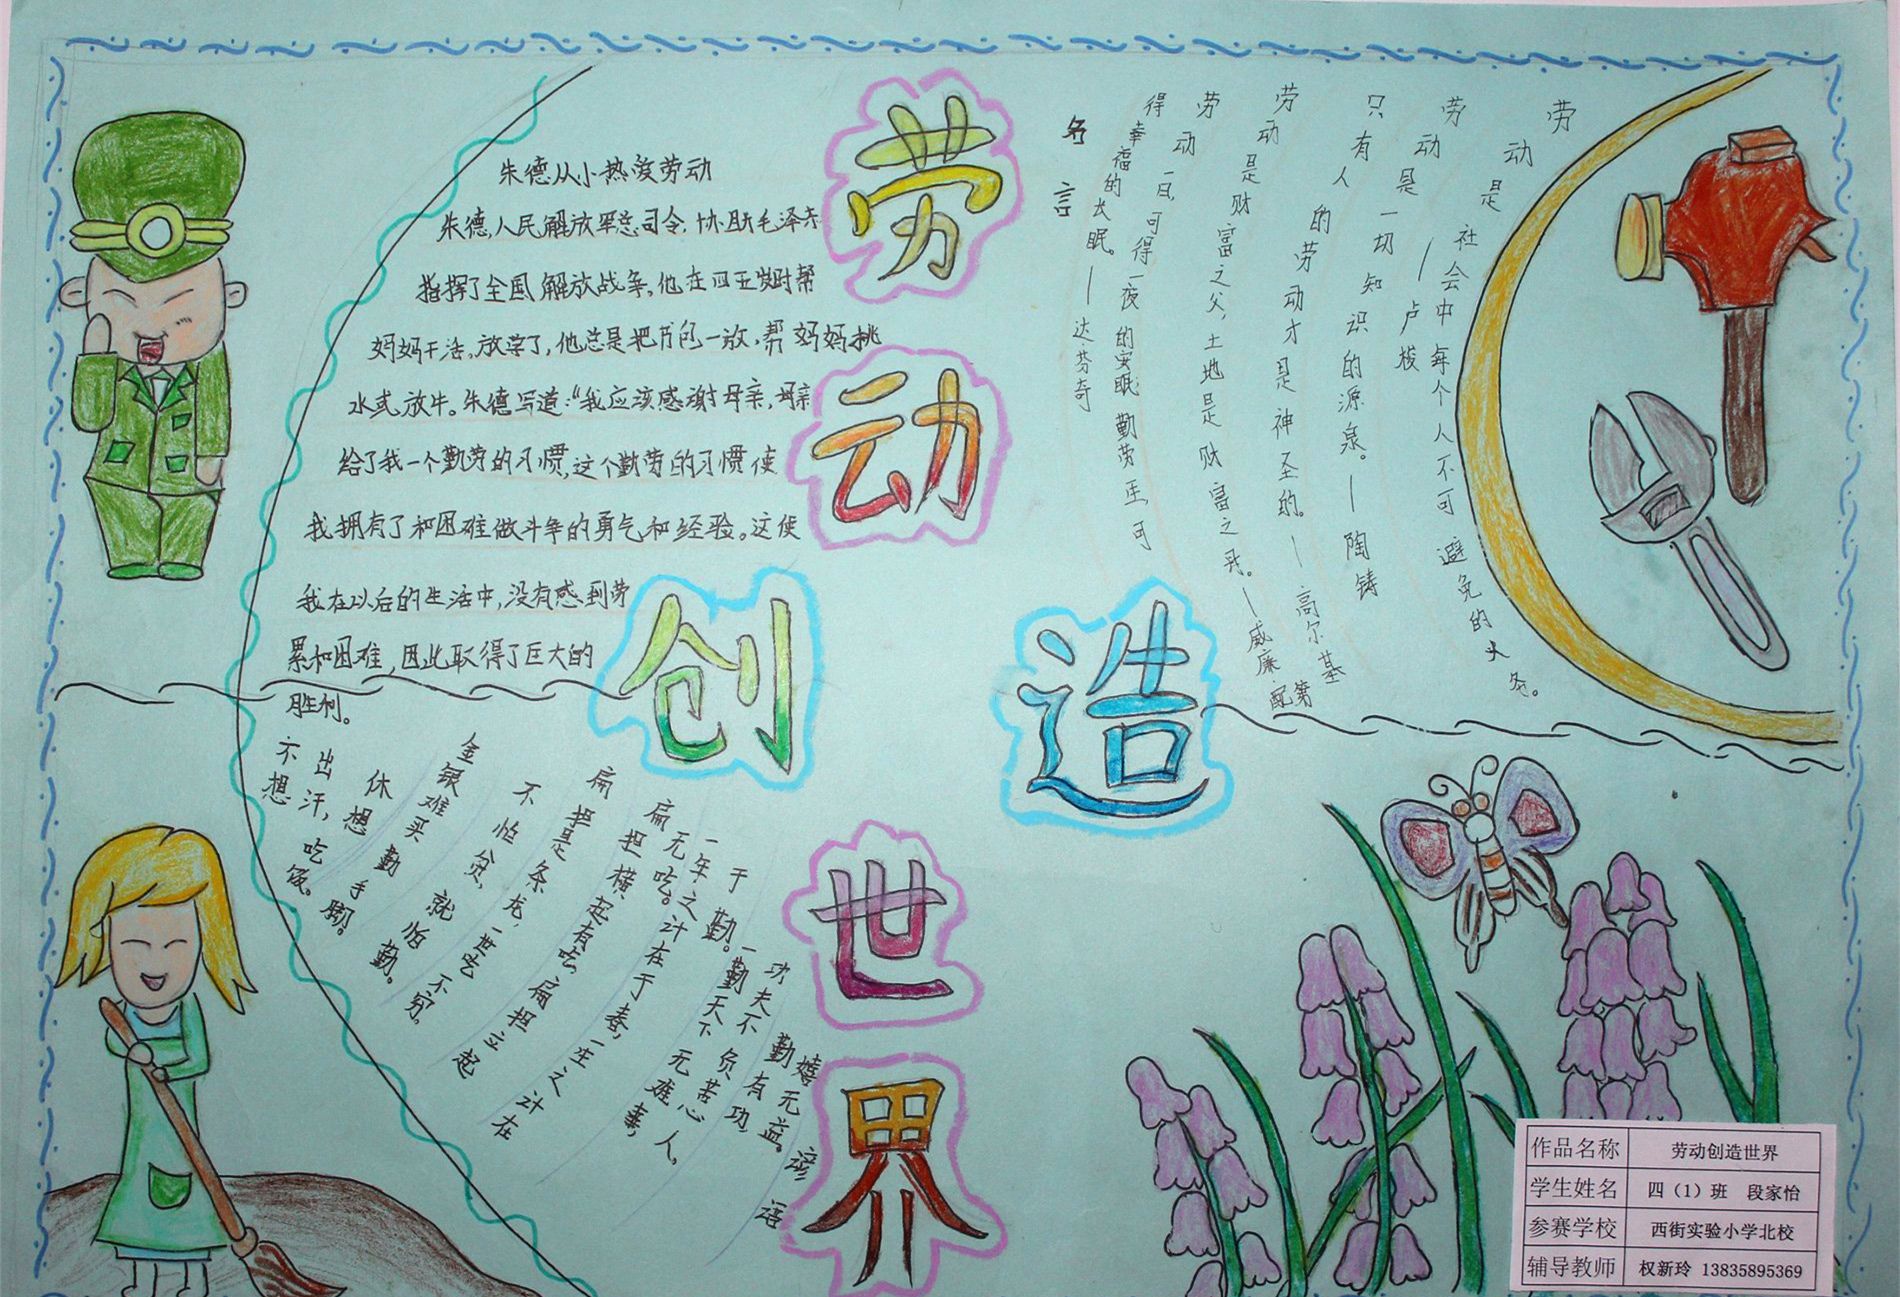 劳动
创造
世界
朱德从小热爱劳动
朱德,人民解放军总司令.协助毛泽东
指挥了全国解放战争,他在四五岁时帮
妈妈干活。放学了,他总是把书包一放,帮妈妈挑
水或放牛。朱德写道:“我应该感谢母亲,母亲
给了我一个勤劳的习惯,这个勤劳的习惯使
我拥有了和困难做斗争的勇气和经验。这使
我在以后的生活中,没有感到劳
累和困难,因此取得了巨大的
胜利。
劳动是社会中每个人不可避免的义务。
劳动是一切知识的源泉。—陶铸
只有人的劳动才是神圣的。—高尔基
劳动是财富之父,土地是财富之母。—威廉·配第
劳动一日,可得一夜的安眠 勤劳一生,可
得幸福的长眠。—达芬奇
名言
—卢梭
谚语
嬉无益。
勤有功,
功夫不负苦心人,
一勤天下无难事,
于勤。
一年之计在于春,一生之计在
扁无吃。
扁担横起有吃,扁担立起
扁担是条龙,一世吃不穷。
不怕贫,就怕勤。
金银难买勤手脚。
休想
出汗,吃饭。
不想
作品名称 劳动创造世界
学生姓名 四(1)班 段家怡
参赛学校 西街实验小学北校
辅导教师 权新玲 13835895369